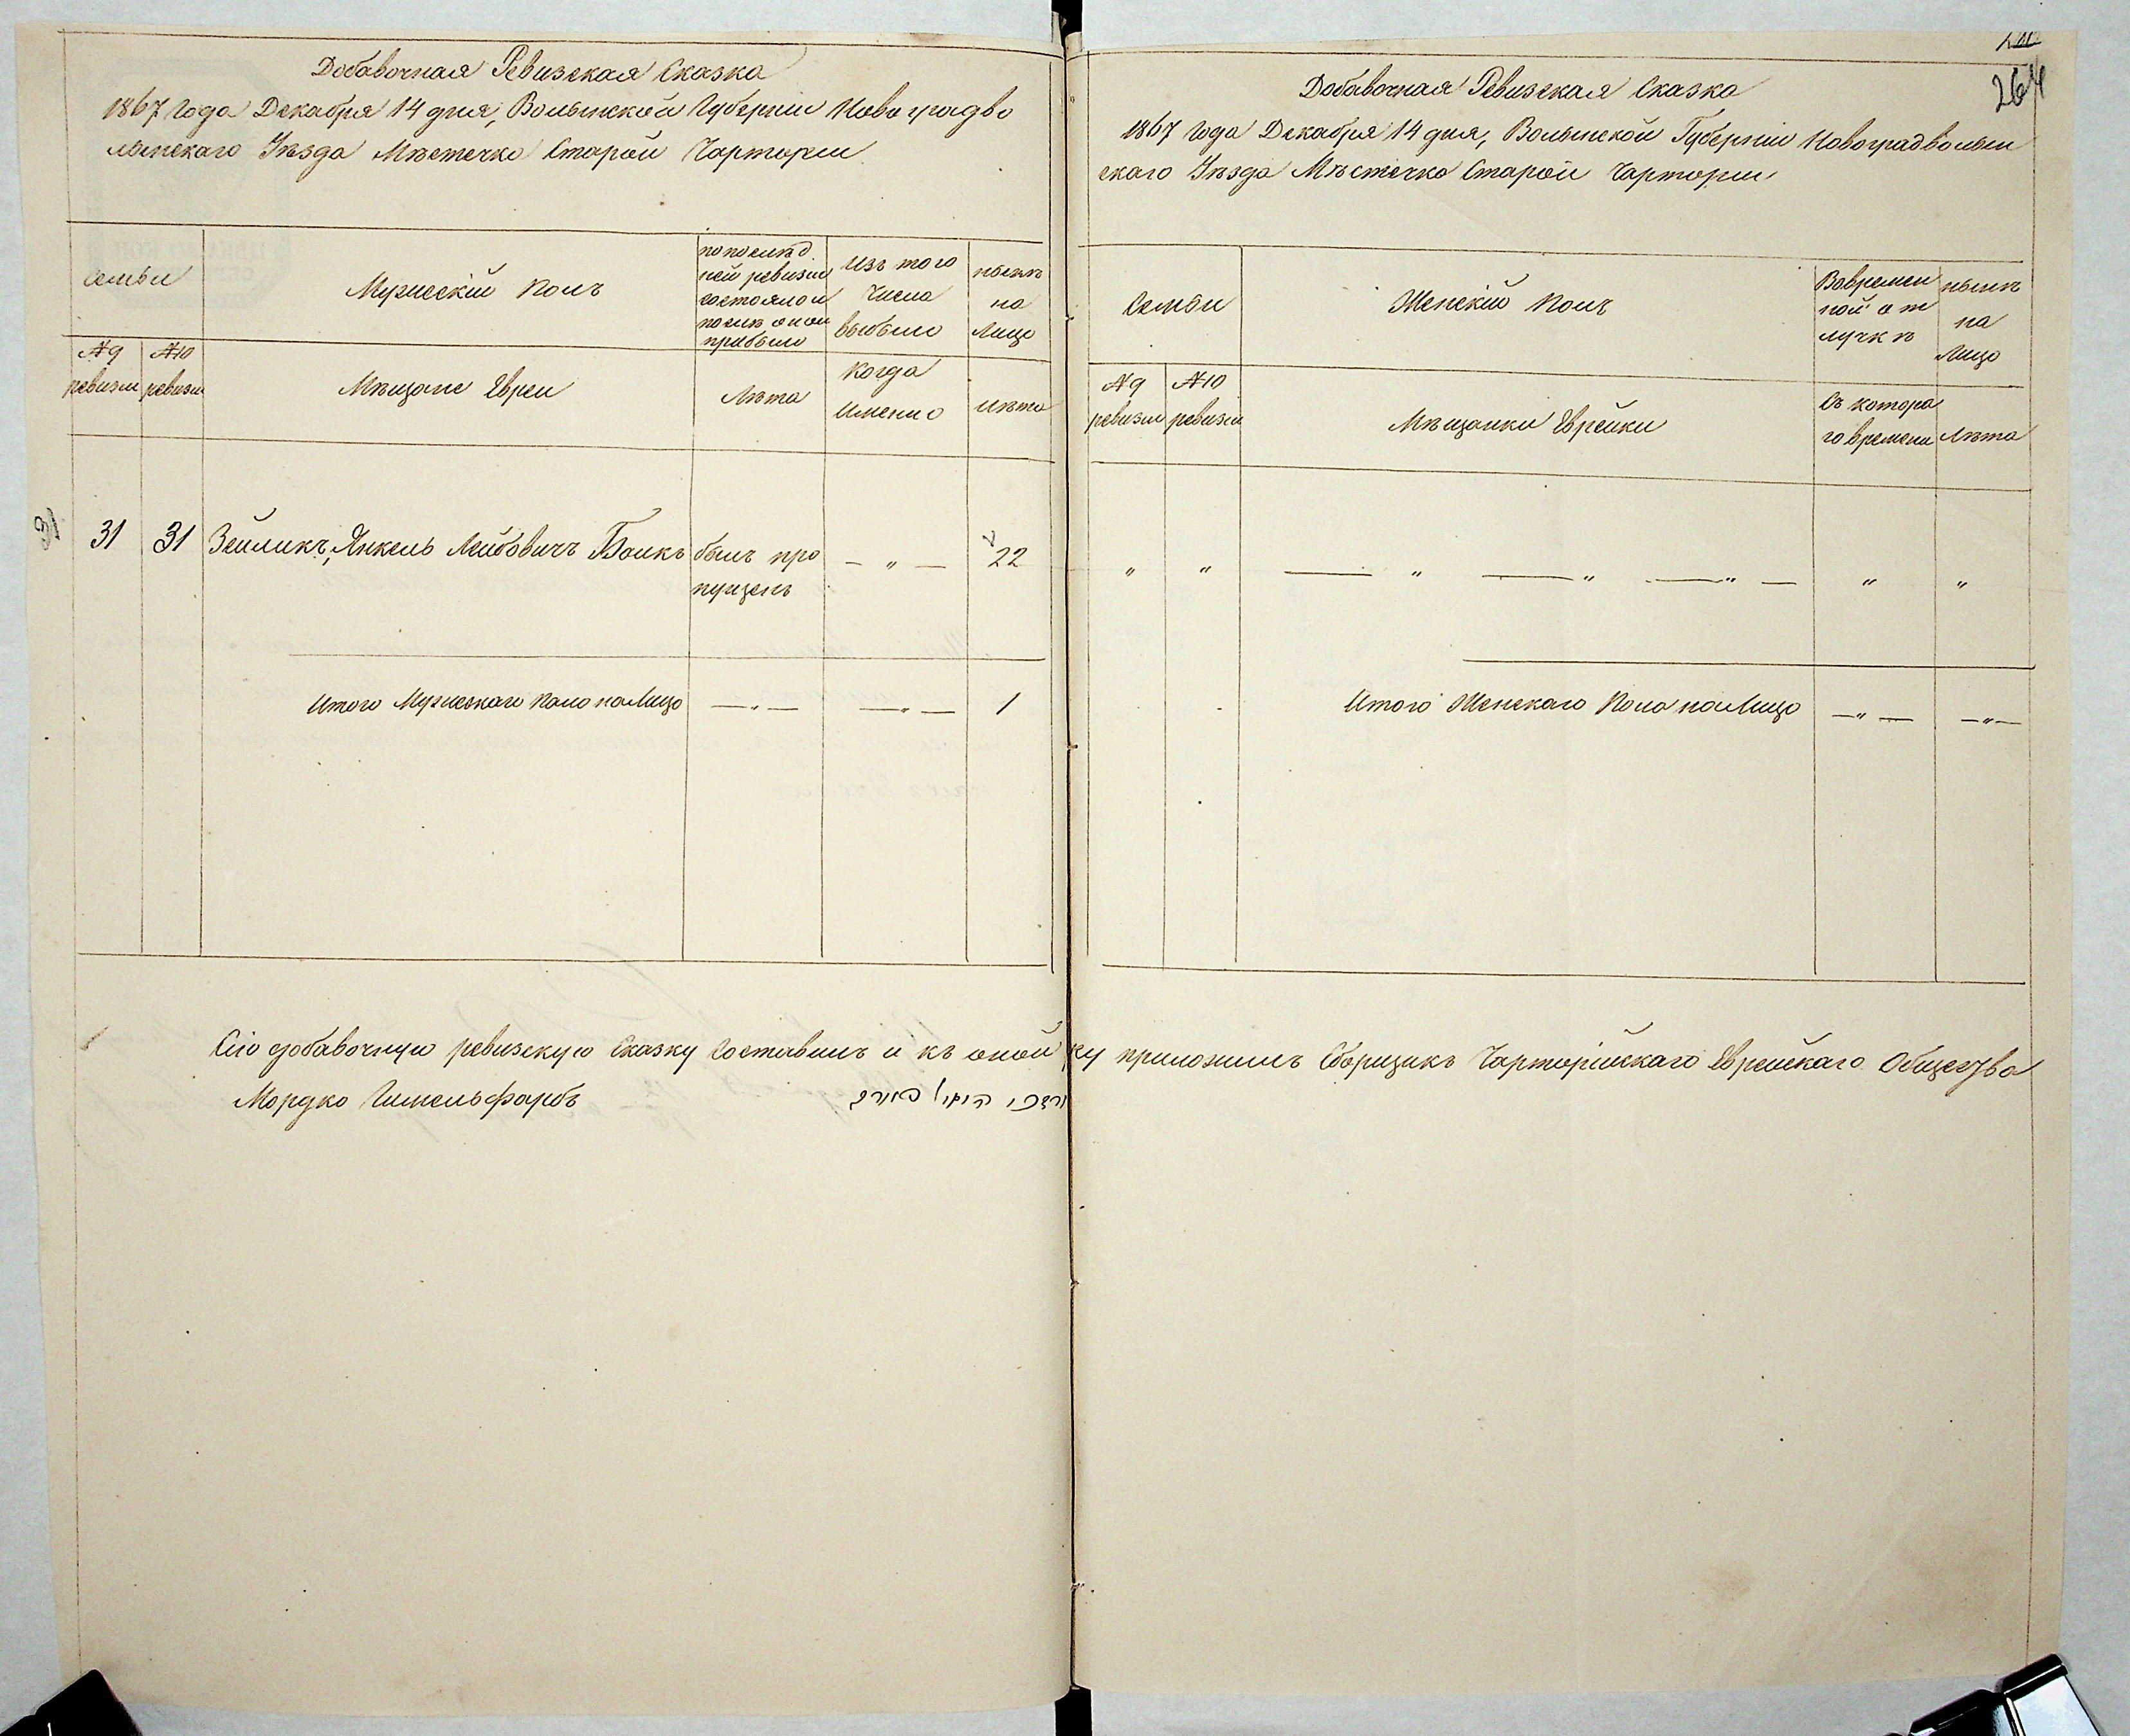 Добавочная Ревизская Сказка
1867 года Декабря 14 дня, Волынской Губернiи Новоградво
лынскаго Уѣзда Мѣстечка Старой Чарторiи
семьи
Мужескiй полъ
по послѣд
ней ревизiи
состояло и
послѣ оной
прибыло
Изъ того
числа
выбыло
нынѣ
на
лицо
№9
ревизiи
№10
ревизiи
Мѣщане Евреи
Лѣта
когда
именно
лѣта
31
31
31
Зейликъ, Янкель Лейбовичъ Боикъ
былъ про
пущенъ
— „ —
22
Итого Мужескаго пола на Лицо
— „ —
— „ —
1
264
Добавочная Ревизская Сказка
1867 года Декабря 14 дня, Волынской Губернiи Новоградволын
скаго Уѣзда Мѣстечка Старой Чарторiи
Семьи
Женскiй полъ
Вовремен
ной от
лучкѣ
нынѣ
на
Лицо
№9
ревизiи
№10
ревизiи
Мѣщанки Еврейки
Съ котора
го времени
Лѣта
„ „ — „ — „ — „ — „ „
Итого Женскаго Пола на Лицо
— „ —
— „ —
Сiю добавочную ревизскую сказку составилъ и къ оной ру
ку приложилъ Сборщикъ Чарторiйскаго Еврейскаго Общества
Мордко Гимельфарбъ